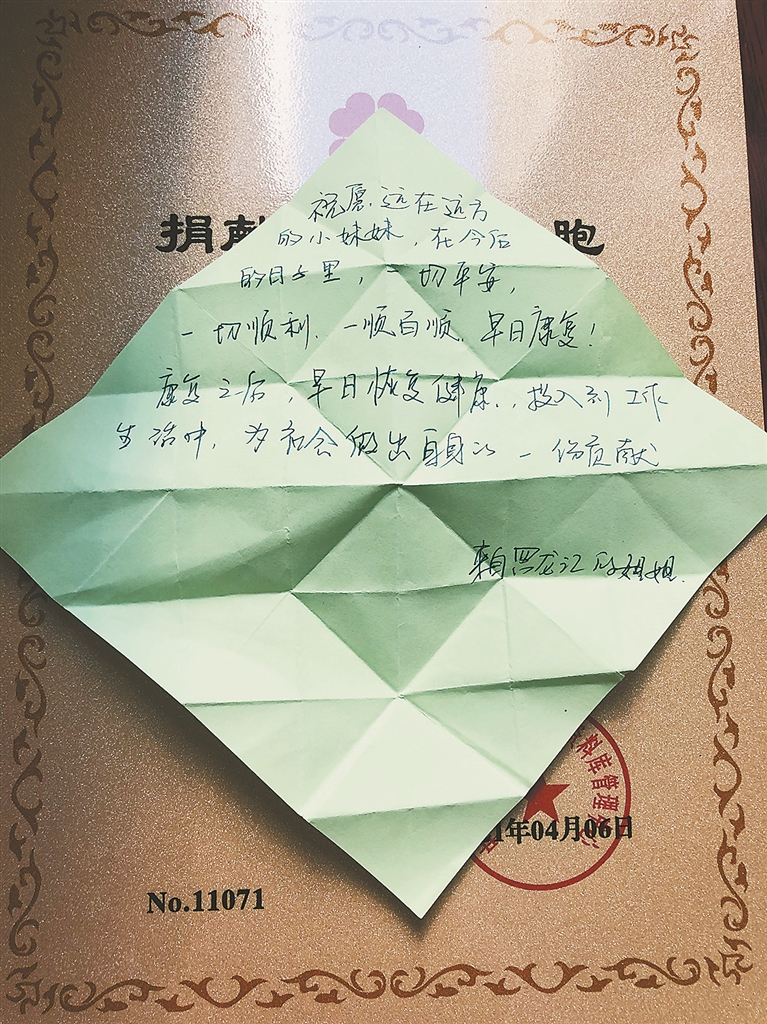 捐献
胞
祝愿远在远方
的小妹妹，在今后
的日子里，一切平安，
一切顺利、一顺百顺、早日康复！
康复之后，早日恢复健康，投入到工作
生活中，为社会做出自身的一份贡献
来自黑龙江的姐姐
料库管理
1年04月06日
No.11071